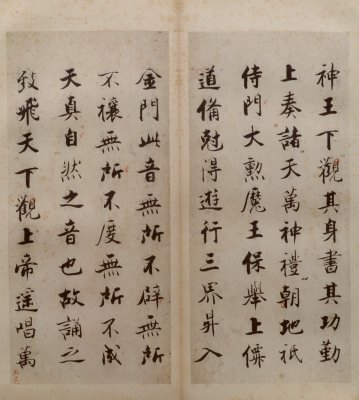 神王下觀其身書其功勤
上奏諸天萬神禮朝地祇
侍門大勲魔王保舉上僊
道備剋得遊行三界昇入
金門此音無所不辟無所
不禳無所不度無所不成
天真自然之音也故誦之
致飛天下觀上帝遥唱萬